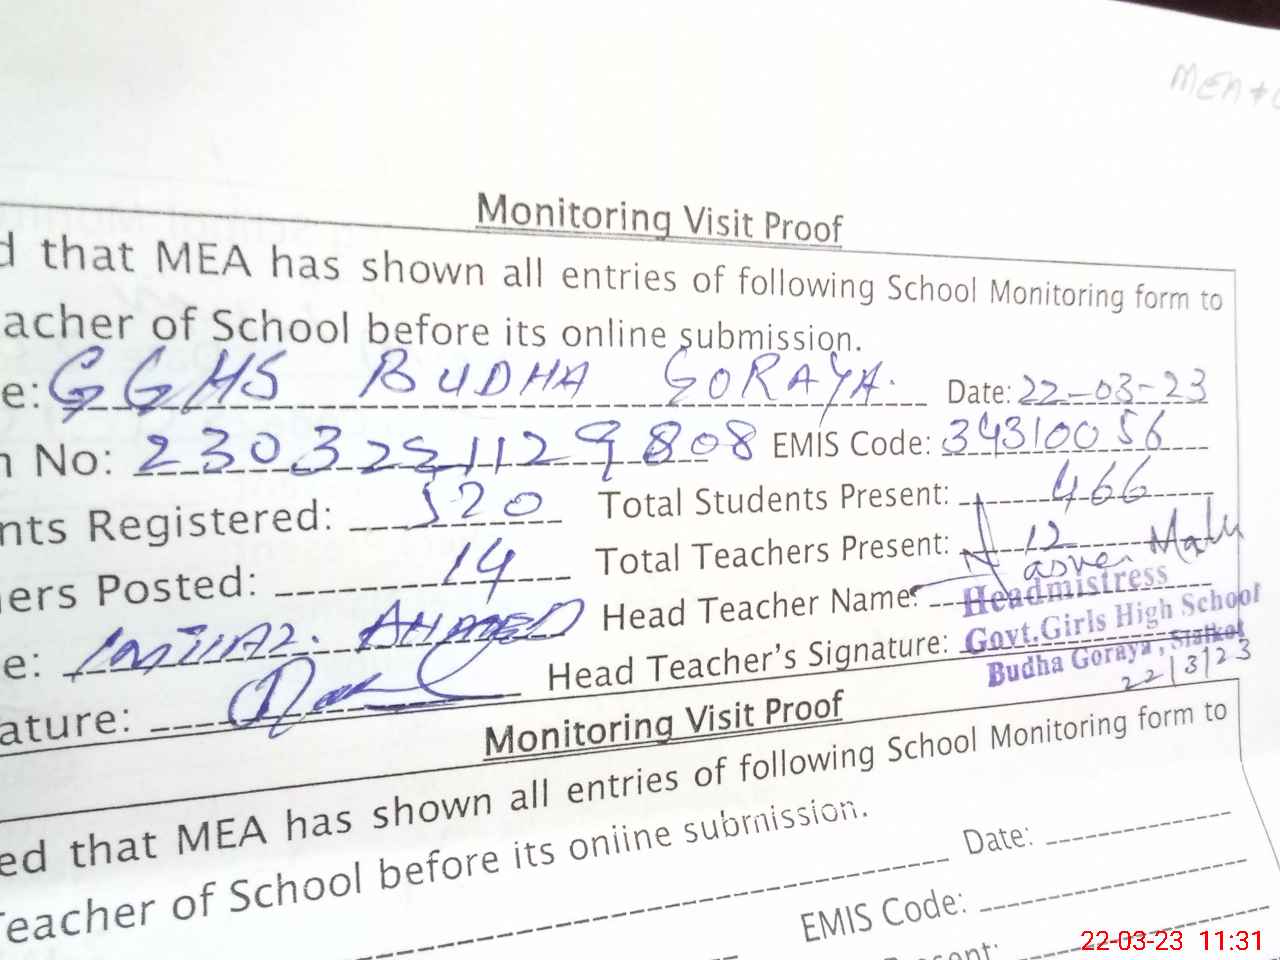 Monitoring Visit Proof
d that MEA has shown all entries of following School Monitoring form to
acher of School before its online submission.
e: GGHS BUDHA GORAYA. Date: 22-03-23
n No: EMIS Code: 34310056
nts Registered: 520 Total Students Present: 466
ers Posted: 14 Total Teachers Present: 12
e: IMTIAZ. AHMED Head Teacher Name:
ature: Head Teacher's Signature:
Headmistress
Govt.Girls High School
Budha Goraya, Sialkot
22/3/23
Monitoring Visit Proof
ed that MEA has shown all entries of following School Monitoring form to
Teacher of School before its online submission.
Date:
EMIS Code:
22-03-23 11:31